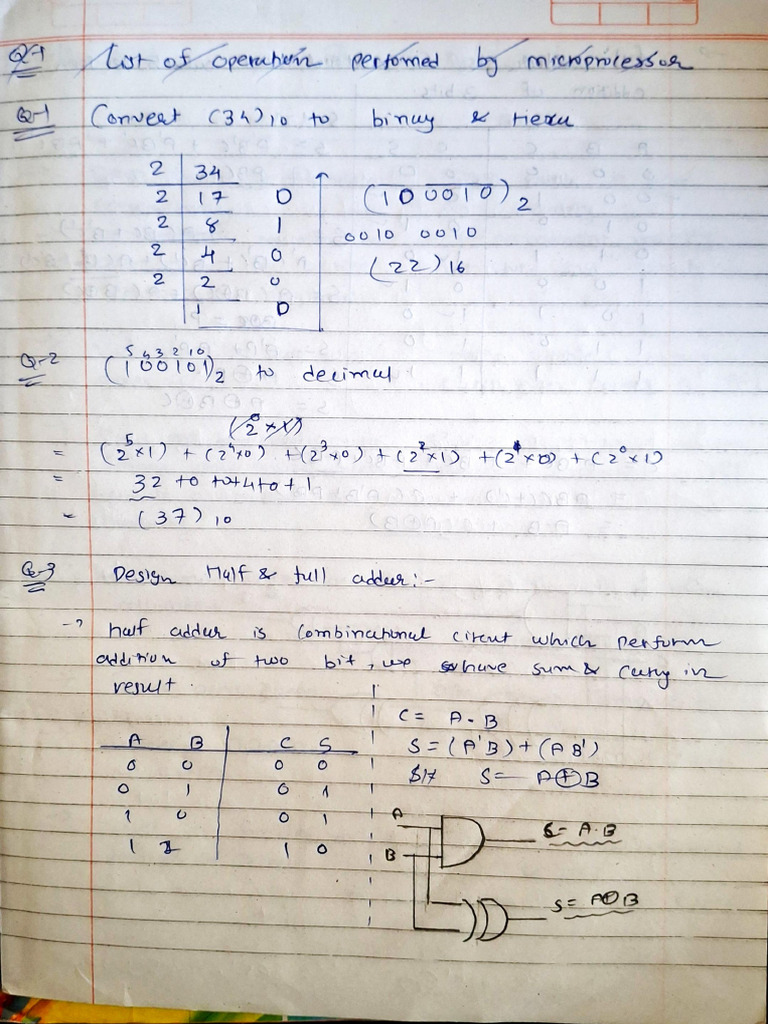 Q-1 List of operation perfomed by microprocessor
Q-1 Convert (34)10 to binay & Hexa
2 34
2 17 0
2 8 1
2 4 0
2 2 0
1 0
(100010)2
0010 0010
(22)16
Q-2 (100101)2 to decimal
5 4 3 2 1 0
(2^0 × 1)
= (2^5×1) + (2^4×0) + (2^3×0) + (2^2×1) + (2^1×0) + (2^0×1)
= 32 +0 +0+4+0+1
= (37)10
Q-3 Design Half & full adder:-
→ Half adder is Combinational circuit which perform
addition of two bit, we have sum & Carry in
result.
A B C S
0 0 0 0
0 1 0 1
1 0 0 1
1 1 1 0
C = A · B
S = (A'B) + (AB')
S = A⊕B
A
B
C = A·B
S = A⊕B